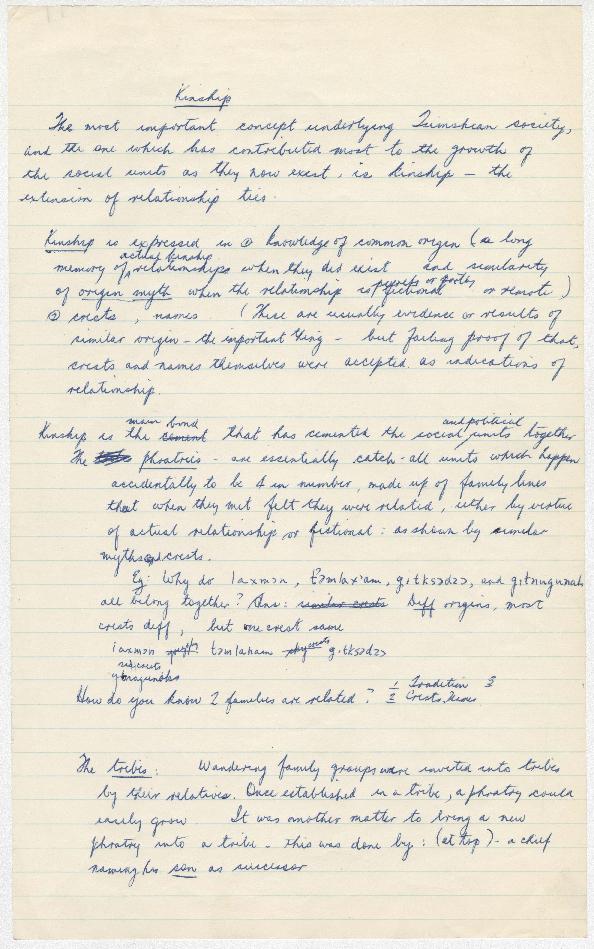 Kinship
The most important concept underlying Tsimshean society,
and the one which has contributed most to the growth of
the social units as they now exist, is kinship – the
extension of relationship ties.
Kinship is expressed in ① knowledge of common origin (a long
actual kinship
memory of relationships when they did exist and similarity
of origin myth when the relationship is fictional or remote)
② crests, names (These are usually evidence or results of
similar origin – the important thing – but failing proof of that,
crests and names themselves were accepted as indications of
relationship.
main bond and political
Kinship is the cement that has cemented the social units together
The phratries – are essentially catch-all units which happen
accidentally to be 4 in number, made up of family lines
that when they met felt they were related, either by virtue
of actual relationship or fictional: as shown by similar
myths and crests.
Eg: Why do laxmɔn, tɔmlax'am, g.itksɔdzɔ, and g.itnugunaks
all belong together? Ans: similar crests Diff origins, most
crests diff, but one crest same
laxmɔn tɔmlaham g.itksɔdzɔ
How do you know 2 families are related? 1 Tradition 3
2 Crests, Names
The tribes: Wandering family groups were invited into tribes
by their relatives. Once established in a tribe, a phratry could
easily grow. It was another matter to bring a new
phratry into a tribe – this was done by: (at top) – a chief
naming his son as successor